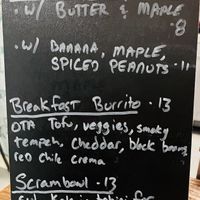 · W/ BUTTER & MAPLE
· 8
· W/ BANANA, MAPLE,
SPICED PEANUTS · 11
Breakfast Burrito · 13
OTA Tofu, veggies, smoky
tempeh, Cheddar, black beans,
red chile crema
Scrambowl · 13